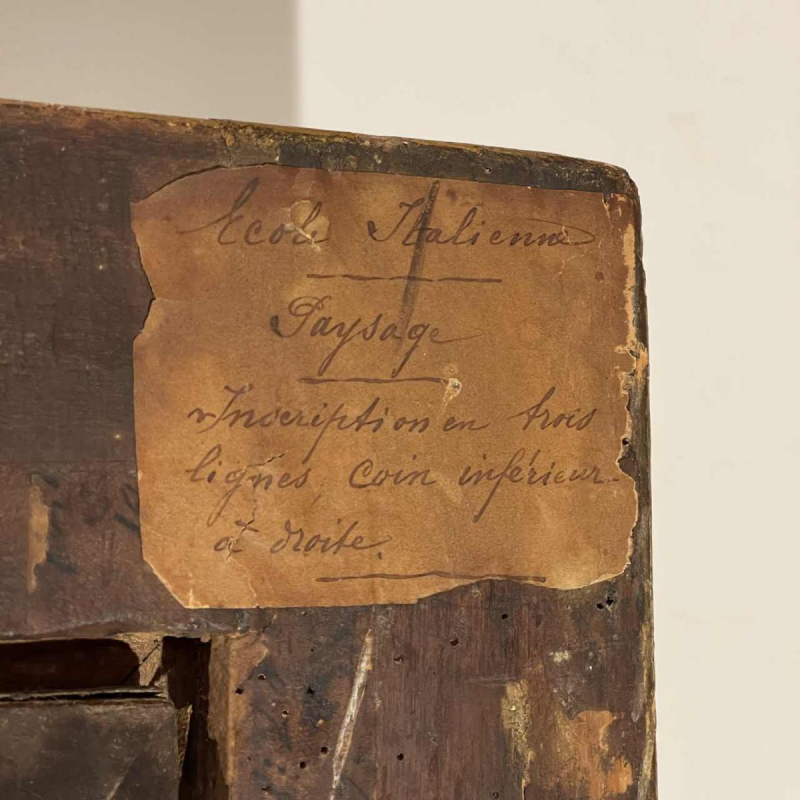 Ecole Italienne
Paysage
Inscription en trois
lignes, coin inférieur
à droite.